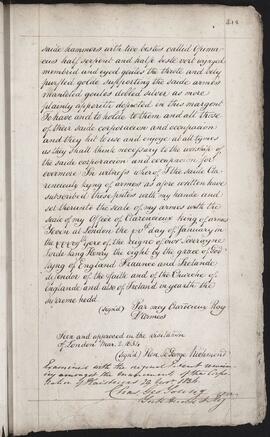 saide hammers with two bestes called Grima
cus half serpent and half beste vert winged
membrid and eyed goules the throte and bely
purfled golde supporting the saide armes
mantled goules dobled silver as more
plainly apperith depicted in this margent
To have and to holde to them and all those
of their saide corporacion and occupacion
and they hit to use and enjoye at all tymes
as they shall think necessary to the worship of
the saide corporacion and occupacion for
evermore In witness wherof I the saide Cla
renceulx kyng of armes as afore written have
subscribed these patents with my hande and
set therunto the seale of my armes with the
seale of my Office of Clarenceux king of armes
Geven at London the day of January in
the yere of the reigne of our Soverayne
Lorde king Henry the eight by the grace of God
kyng of England Fraunce and Irelande
defendor of the faith and of the Churche of
Englande and also of Ireland in yearth the
supreme hedd
(Signed) Clarenceux Roy
D'armes
Seen and approved in the visitation
of London 1634
(Signed) Hen. St. George Richmond
Examined with the original Patent remain
ing amongst the muniments of the
Chas Geo Young